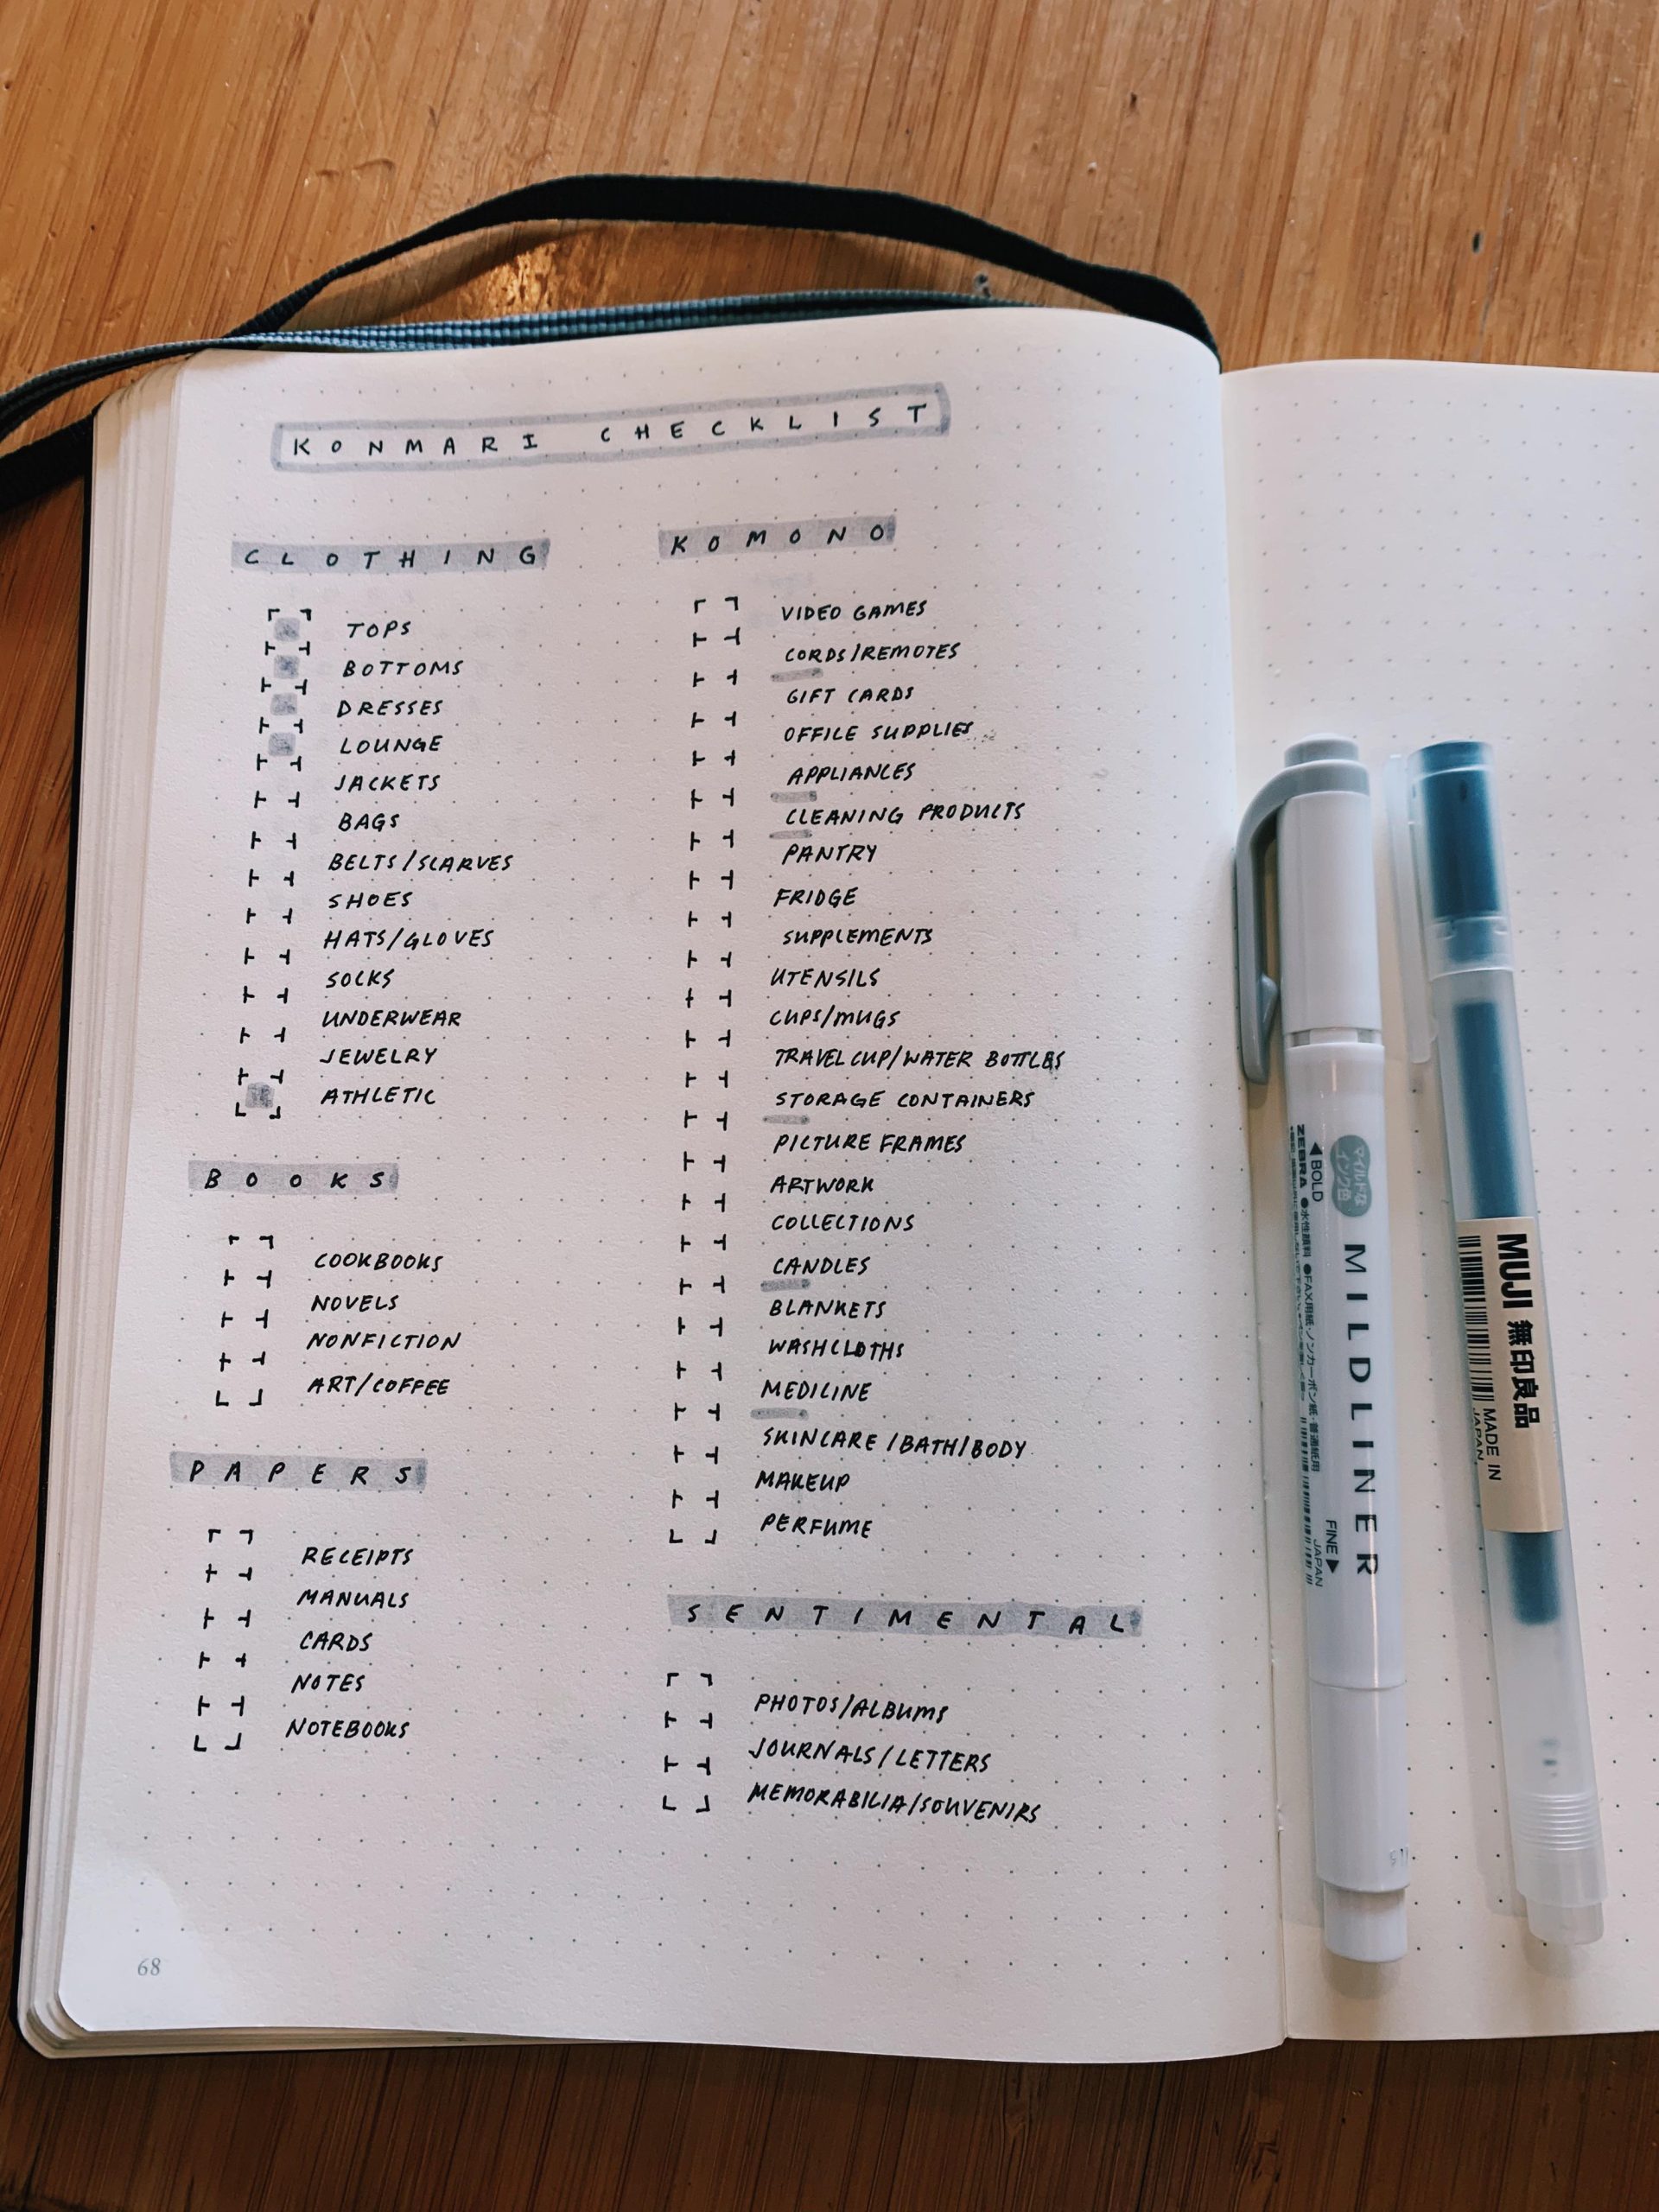 KONMARI CHECKLIST
CLOTHING
TOPS
BOTTOMS
DRESSES
LOUNGE
JACKETS
BAGS
BELTS/SCARVES
SHOES
HATS/GLOVES
SOCKS
UNDERWEAR
JEWELRY
ATHLETIC
BOOKS
COOKBOOKS
NOVELS
NONFICTION
ART/COFFEE
PAPERS
RECEIPTS
MANUALS
CARDS
NOTES
NOTEBOOKS
KOMONO
VIDEO GAMES
CORDS/REMOTES
GIFT CARDS
OFFICE SUPPLIES
APPLIANCES
CLEANING PRODUCTS
PANTRY
FRIDGE
SUPPLEMENTS
UTENSILS
CUPS/MUGS
TRAVEL CUP/WATER BOTTLES
STORAGE CONTAINERS
PICTURE FRAMES
ARTWORK
COLLECTIONS
CANDLES
BLANKETS
WASHCLOTHS
MEDICINE
SKINCARE/BATH/BODY
MAKEUP
PERFUME
SENTIMENTAL
PHOTOS/ALBUMS
JOURNALS/LETTERS
MEMORABILIA/SOUVENIRS
68
マイルドな
インク色
MILDLINER
◀BOLD
FINE▶
ZEBRA ●水性顔料 ●FAX用紙・ノンカーボン紙・普通紙用
JAPAN
MUJI 無印良品
MADE IN
JAPAN